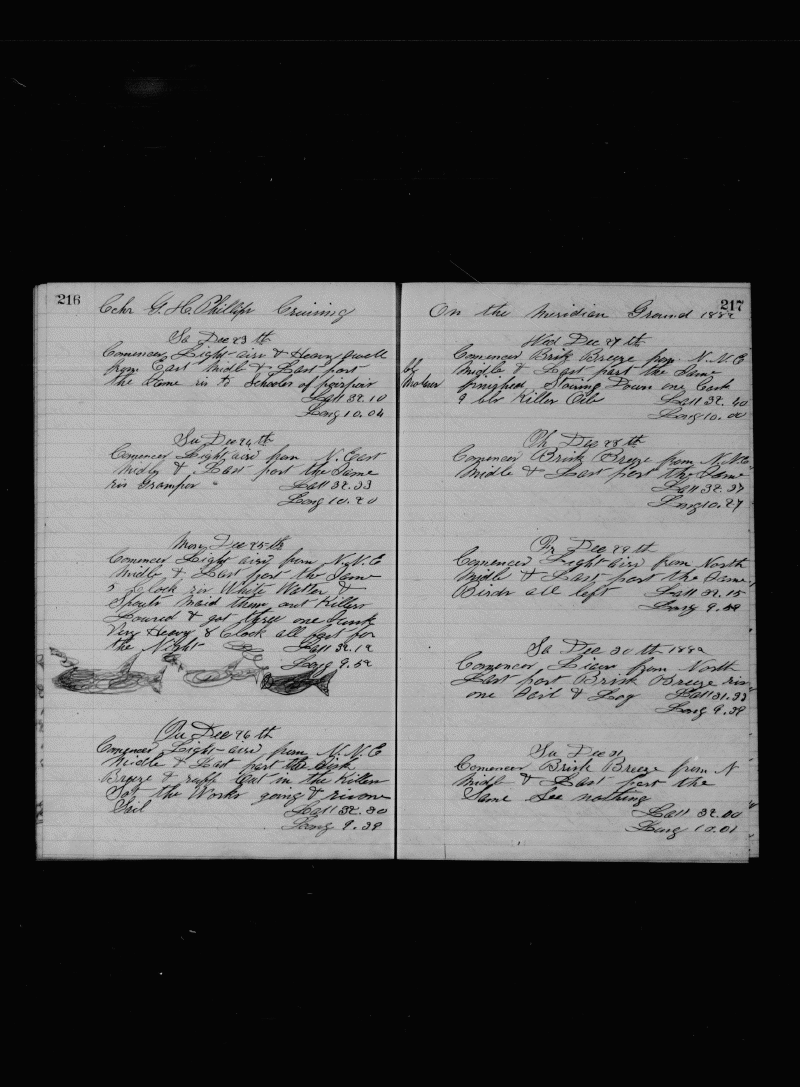 216
Schr G. H. Phillips Cruising
Sa Dec 23 th
Comences Light airs & Heavy Swell
from East midle & Last part
the Same ris to Schooles of
Latt 32.10
Long 10.04
Su Dec 24 th
Comences Light airs from N. East
Midle & Last part the Same
ris Grampus
Latt 32.33
Long 10.20
Mon Dec 25 th
Comences Light airs from N.N.E
Midle & Last part the Same
5 Clock ris White Watter &
Spouts maid them out Killers
Loured & got three one Sunk
Very Heavy 8 Clock all fast for
the Night Latt 32.12
Long 9.52
Tu Dec 26 th
Comences Light airs from N.N.E
Midle & Last part the Brisk
Breeze & ruff Cut in the Killers
Sot the Works going & ris one
Sail Latt 32.30
Long 9.39
217
On the Meridian Ground 1882
Wed Dec 27 th
Comences Brisk Breeze from N.N.E
Midle & Last part the Same
finished Stoing Down one Cask
9 bls Killer Oile Latt 32.40
Long 10.00
Th Dec 28 th
Comences Brisk Breeze from N.N.E
Midle & Last part the Same
Latt 32.37
Long 10.27
Fr Dec 29 th
Comences Light airs from North
Midle & Last part the Same
Birds all left Latt 32.15
Long 9.59
Sa Dec 30 th 1882
Comences Light airs from North
Last part Brisk Breeze ris
one Sail & Log Latt 31.33
Long 9.39
Su Dec 31
Comences Brisk Breeze from N
Midle & Last part the
Same See nothing
Latt 32.00
Long 10.01